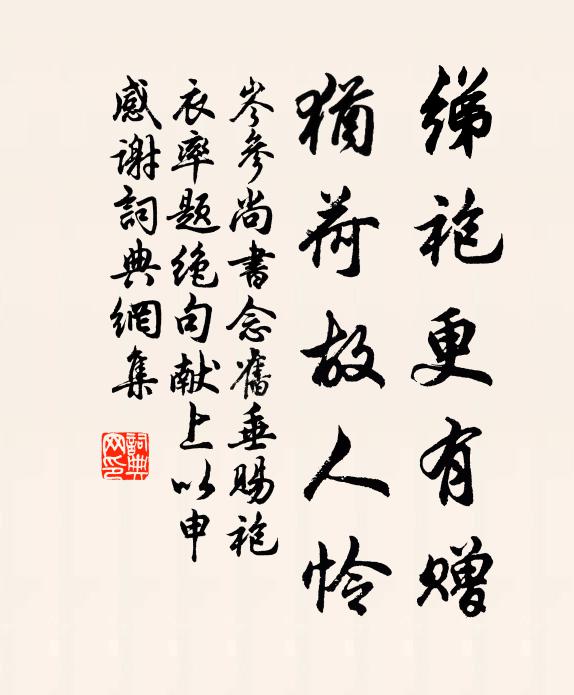 綈袍更有赠
猶荷故人怜
岑参尚書念舊垂賜袍
衣率題绝句献上以申
感谢詞典網集
詞典网印